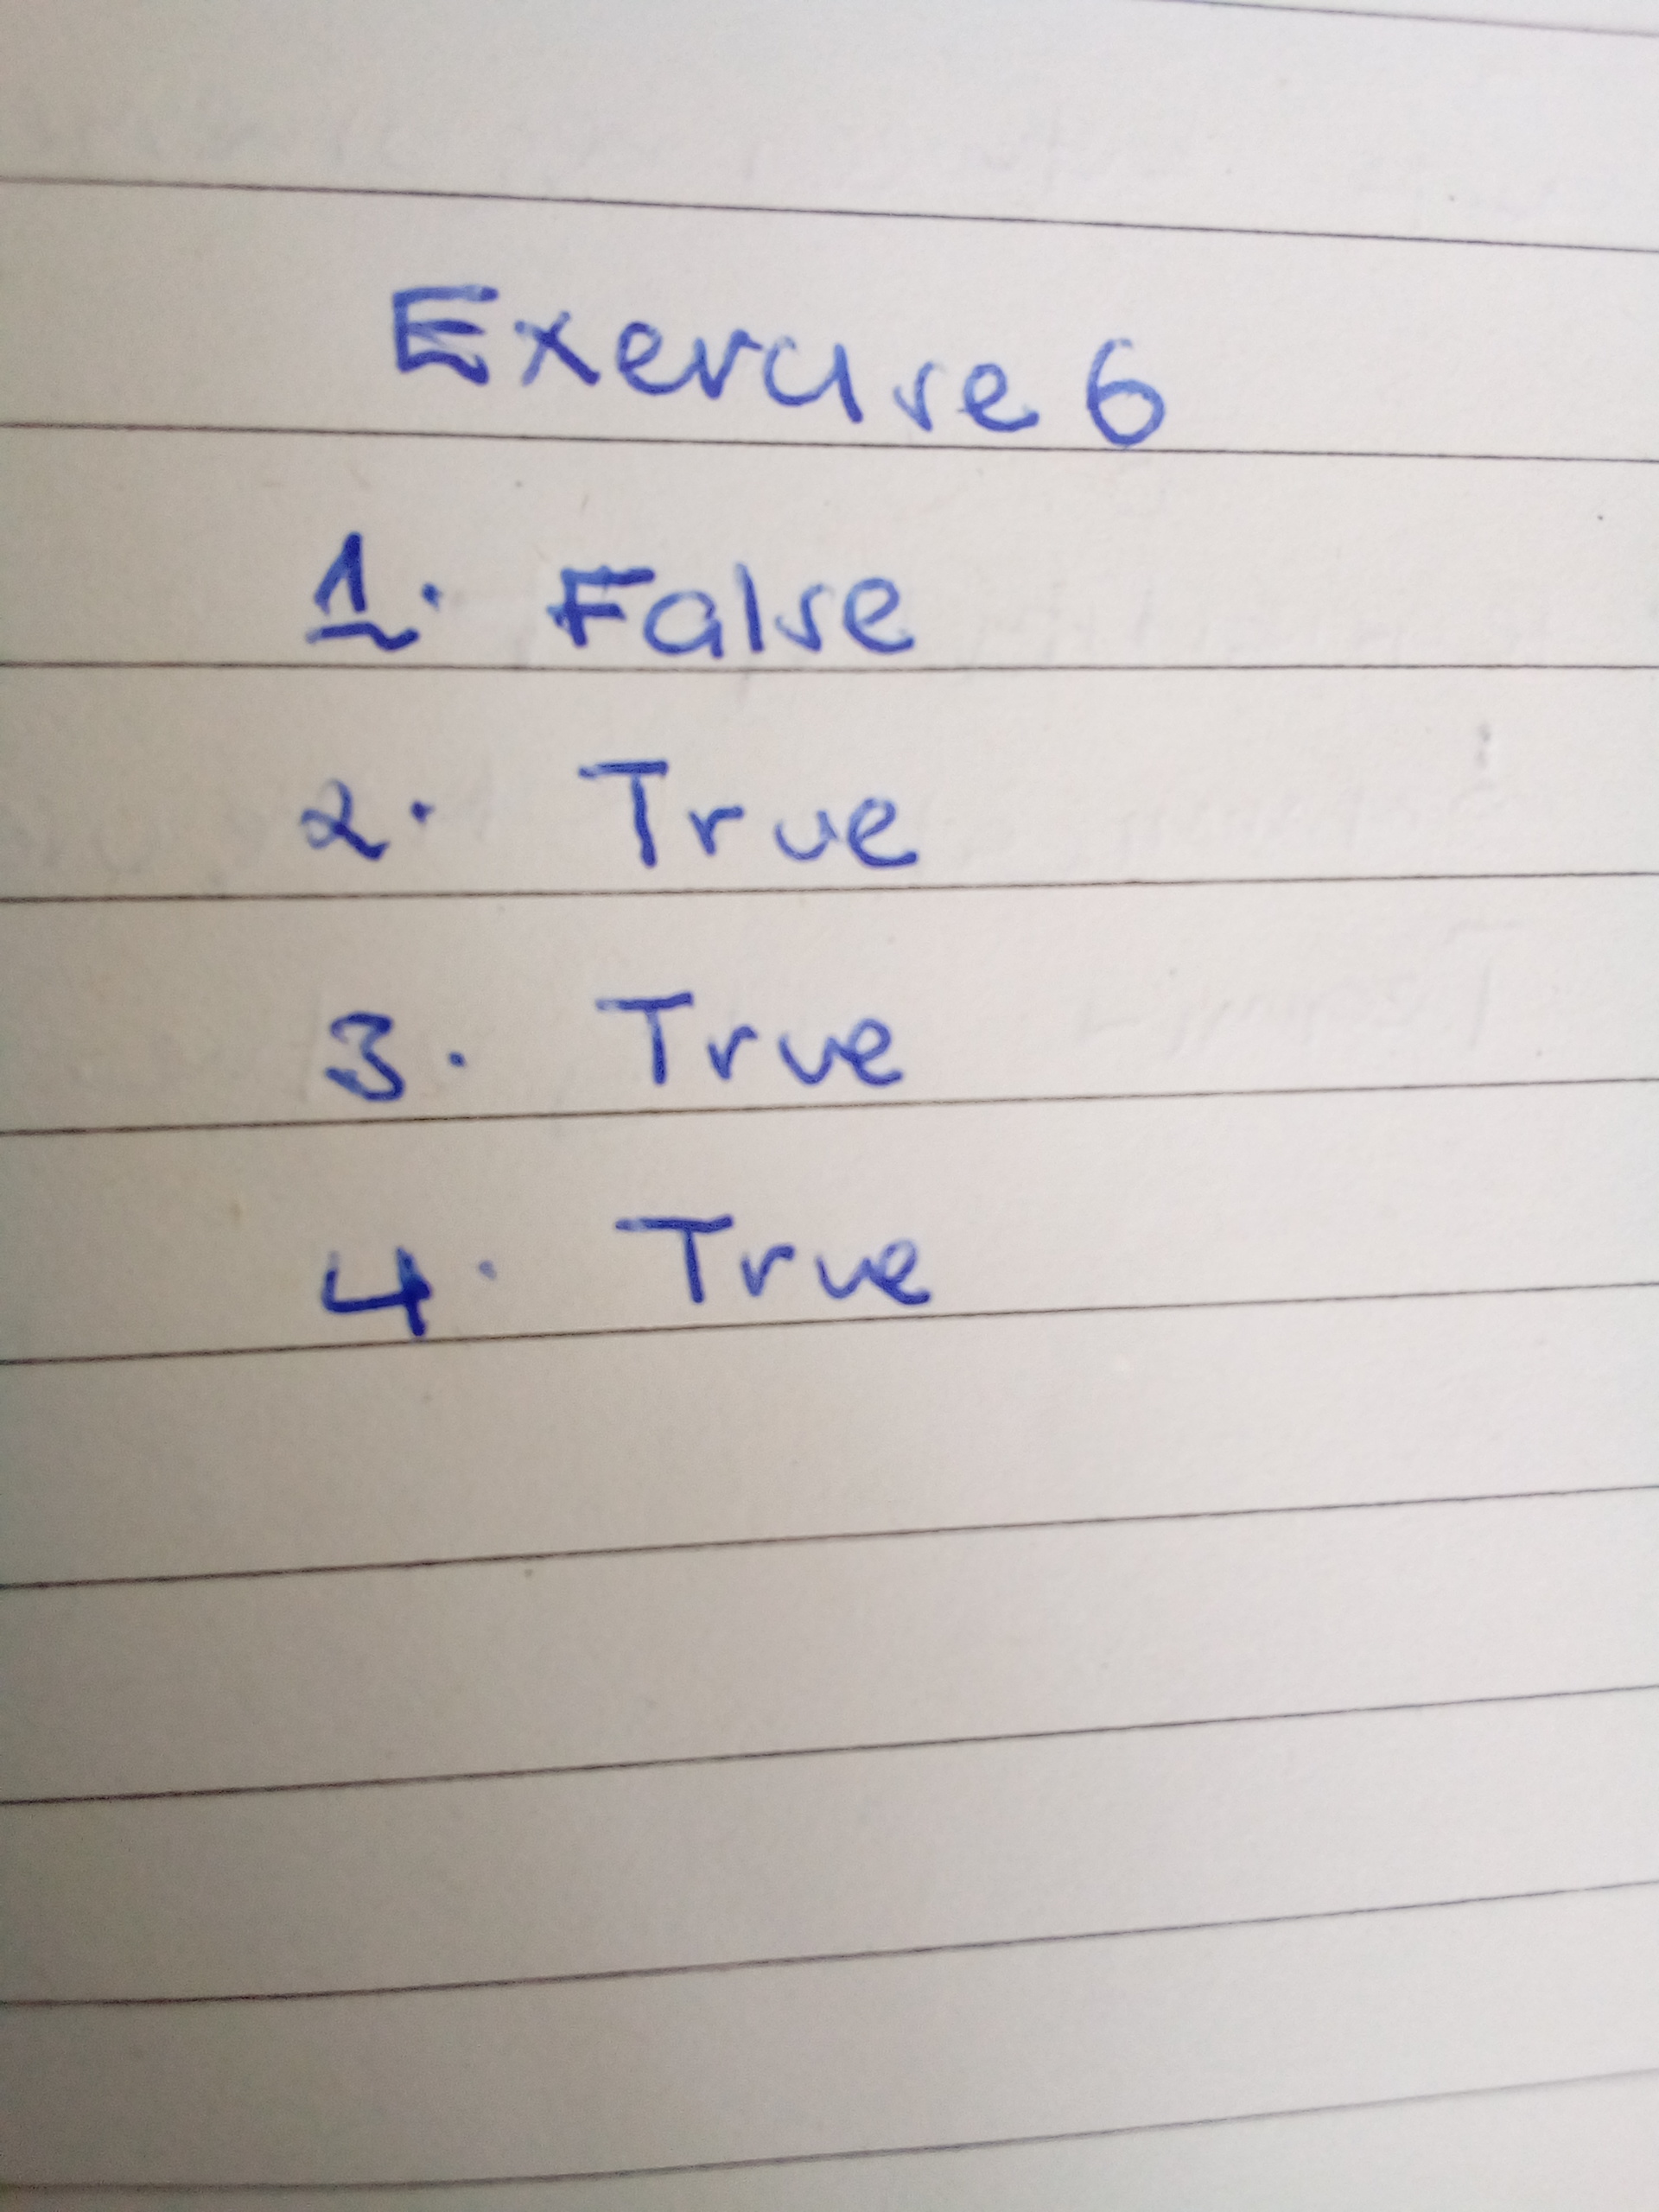 Exercise 6
1. False
2. True
3. True
4. True